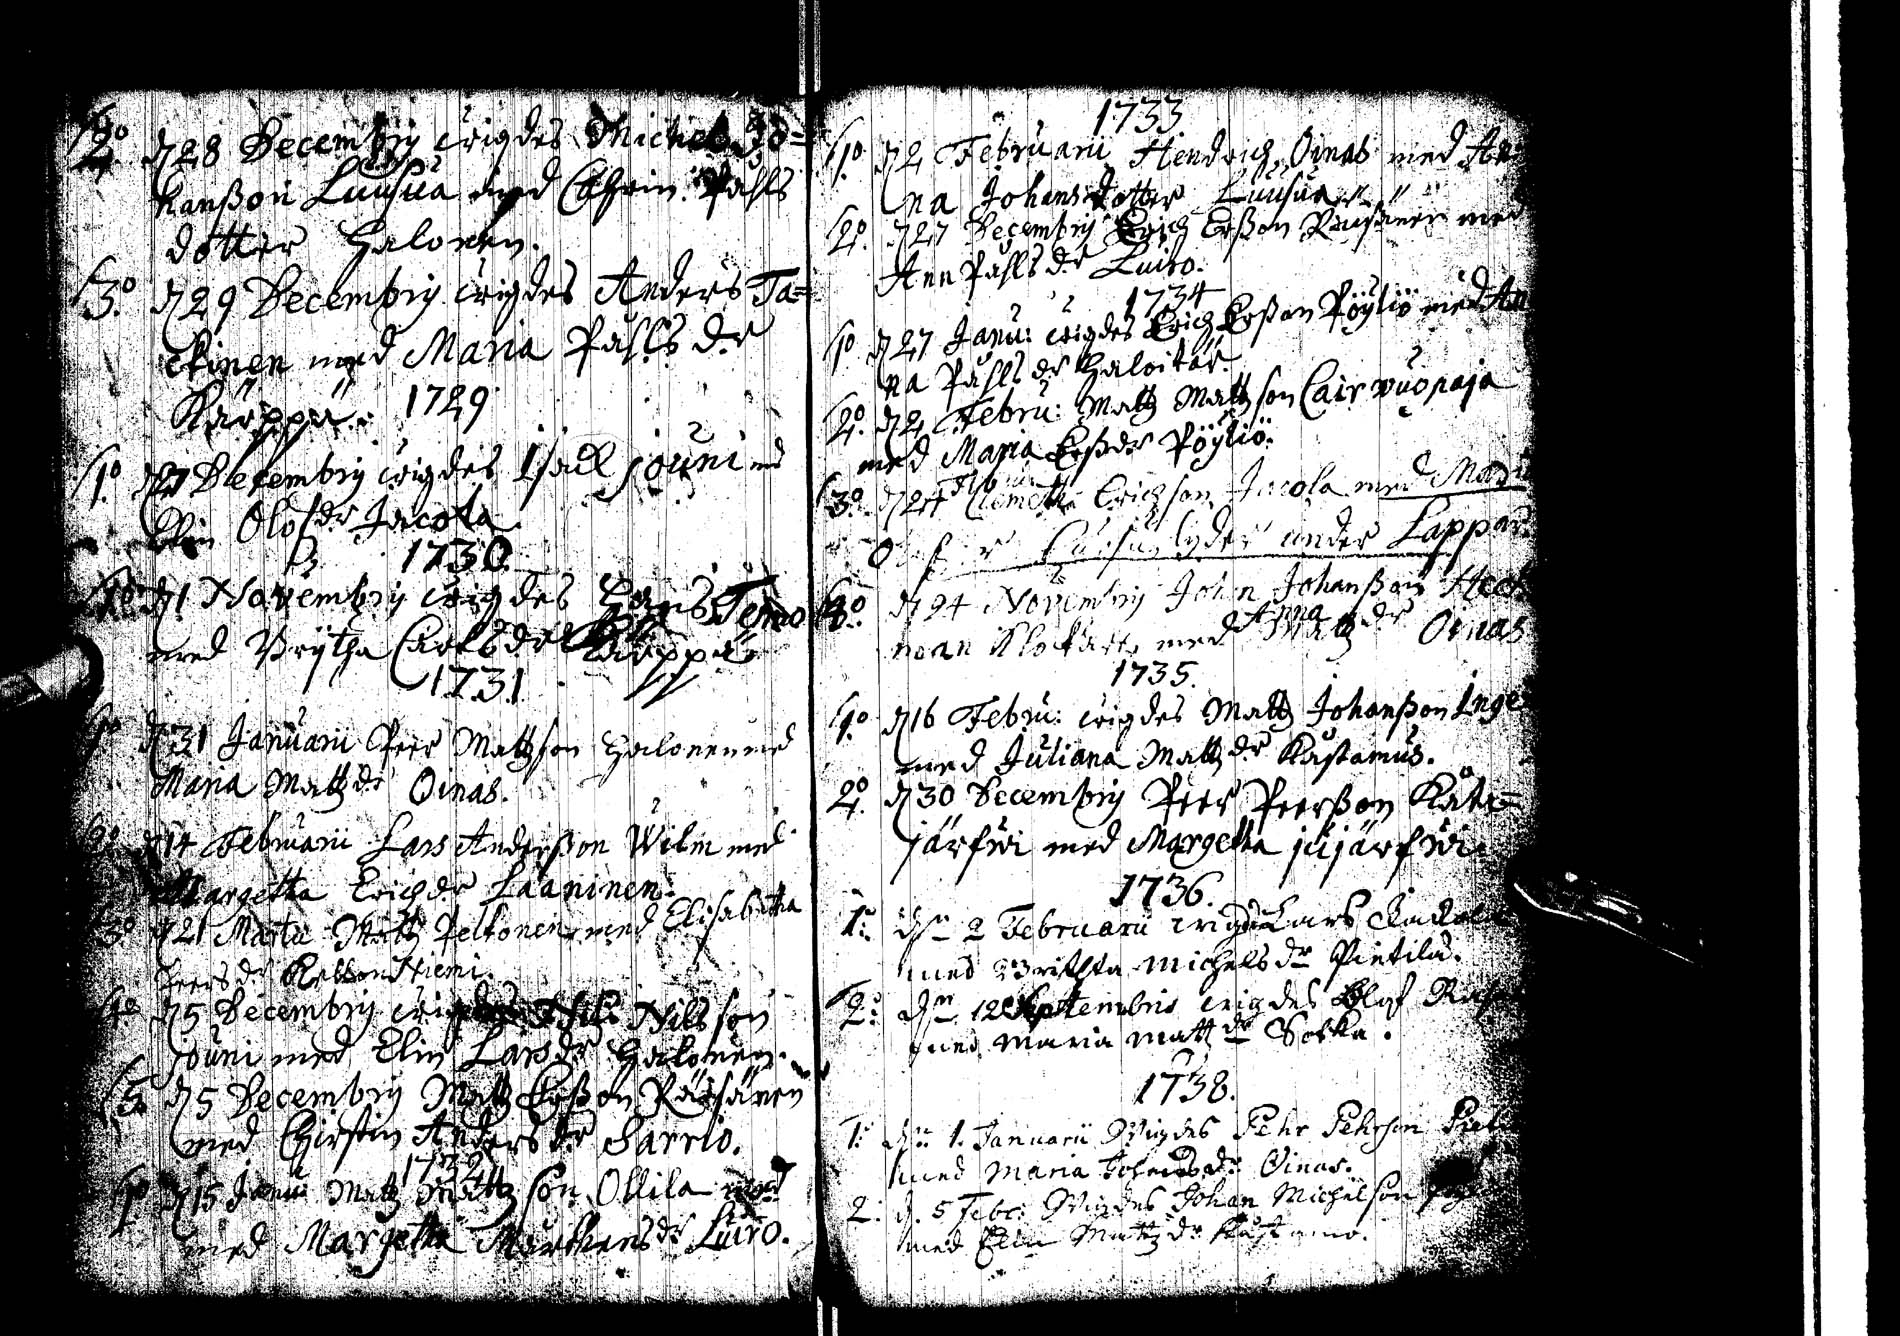 2:o d 28 Decembrij wigdes Michel Jo=
hanßon Luusua med Cathrin Påhls
dotter Halonen.
3:o d 29 Decembrij wigdes Anders Ta=
ckinen med Maria Påhls dr
Kärppä.
1729
1:o d 27 Decembrij wigdes Isack jouni md
Elin Olofdr Jacola
1730.
1:o d 1 Novembrij wigdes Hans Temo
med Brijtha Carlsdr Kärppä.
1731.
1:o d 31 Januarii Peer Mattzson Halonen med
Maria Mattzdr Oinas.
2:o d 14 Februarii Lars Anderßon Wilm med
Margetta Erichdr Laaninen.
3:o d 21 Martii Mattz Peltonen med Elisabetha
Peersdr Niemi.
4:o d 5 Decembrij Nils Nilsson
jouni med Elin Larsdr Halonen.
5:o d 5 Decembrij Mattz Erßon Räisänen
med Chirstin Andersdr Sarrio.
1732
1:o d 15 Janu: Mattz Mattzson Ollila
med Margetta Mårthensdr Luiro.
1733
1:o d 2 Februarii Hendrich Oinas med An
na Johansdotter Luusua
2:o d 27 Decembrij Erich Erßon med
Ann Påhlsdr Luiro.
1734
1:o d 27 Janu: wigdes Erich Erßon Pöyliö med An
na Påhlsdr Haloitar.
2:o d 2 Febru: Mattz Mattzson Cairwuopaja
med Maria Erßdr Pöyliö.
3:o d 24 Febru: Clemet Erichson Jacola med
under Lappar
4:o d 24 Novembrij John Johanßon
Klockare med Anna Mattzdr Oinas
1735.
1:o d 16 Febru: wigdes Mattz Johanßon Inge
med Juliana Mattzdr Kustamus.
2:o d 30 Decembrij Peer Peerßon Käta=
järfwi med Margetta jujärfwi.
1736.
1:o dn 2 Februarii wigdes Lars
med Brittha Michelsdr Pietilä.
2:o dn 12 Septembris wigdes Olof
med Maria Mattdr Sotka.
1738.
1:o dn 1. Januarii Wigdes Pehr Pehrson
med Maria Oinas.
2: d. 5 Febr: Wigdes Johan Michelson
med Elin Mattzdr Kustamo.